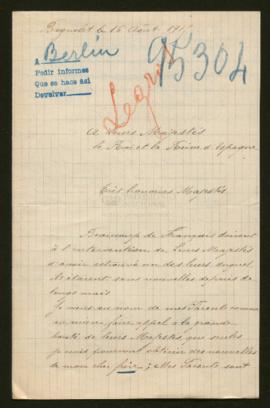 le 15 Août 191
A Berlin
Pedir informes
Que se haga así
Devolver
95304
A Leurs Majestés
le Roi et la Reine d'Espagne
Très honorées Majestés
Beaucoup de Français doivent
à l'intervention de Leurs Majestés
d'avoir retrouvé un des leurs duquel
ils étaient sans nouvelles depuis de
longs mois
Je viens au nom de mes Parents comme
au mien faire appel à la grande
bonté de leurs Majestés qui seules
peuvent obtenir des nouvelles
de mon cher frère; Mes Parents sont